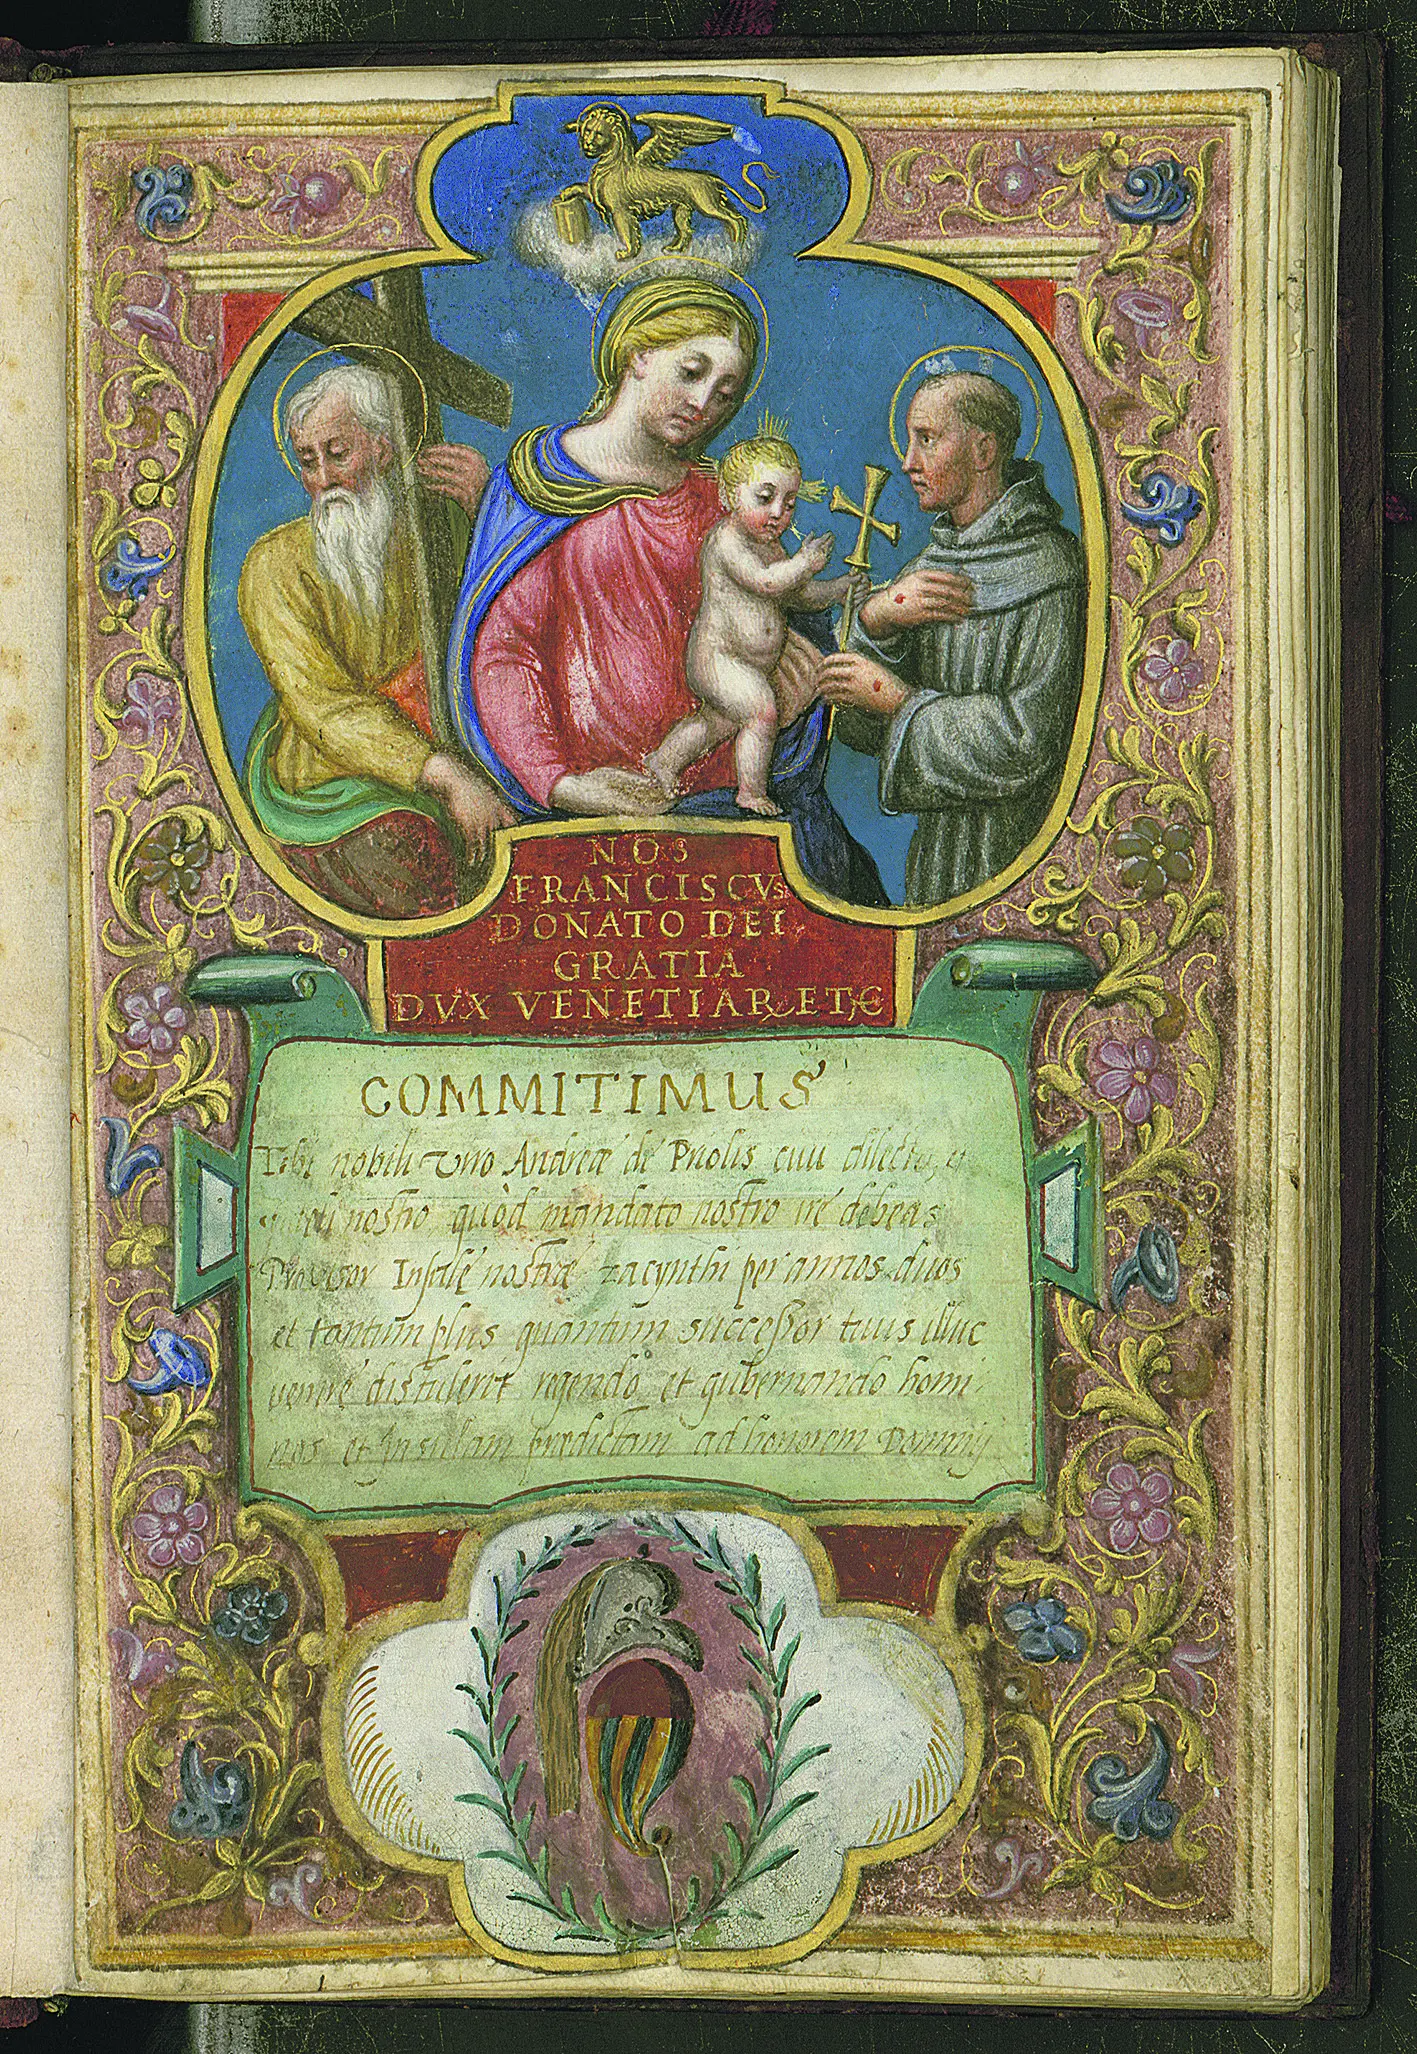 NOS
FRANCISCVS
DONATO DEI
GRATIA
DVX VENETIAR ETC
COMMITIMUS
Tibi nobili viro Andreæ de Priolis civi dilecto, et
fideli nostro quòd mandato nostro ire debeas
Provisor Insulę nostræ zacynthi per annos duos
et tantum plus quantum successor tuus illuc
venire distulerit regendo et gubernando homi-
nes et Insulam prædictam ad honorem Dominij